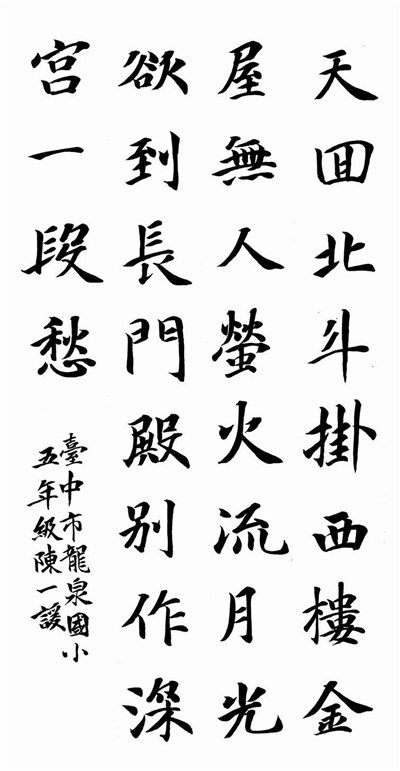 天囬北斗掛西樓金
屋無人螢火流月光
欲到長門殿别作深
宮一段愁
臺中市龍泉國小
五年級陳一諼